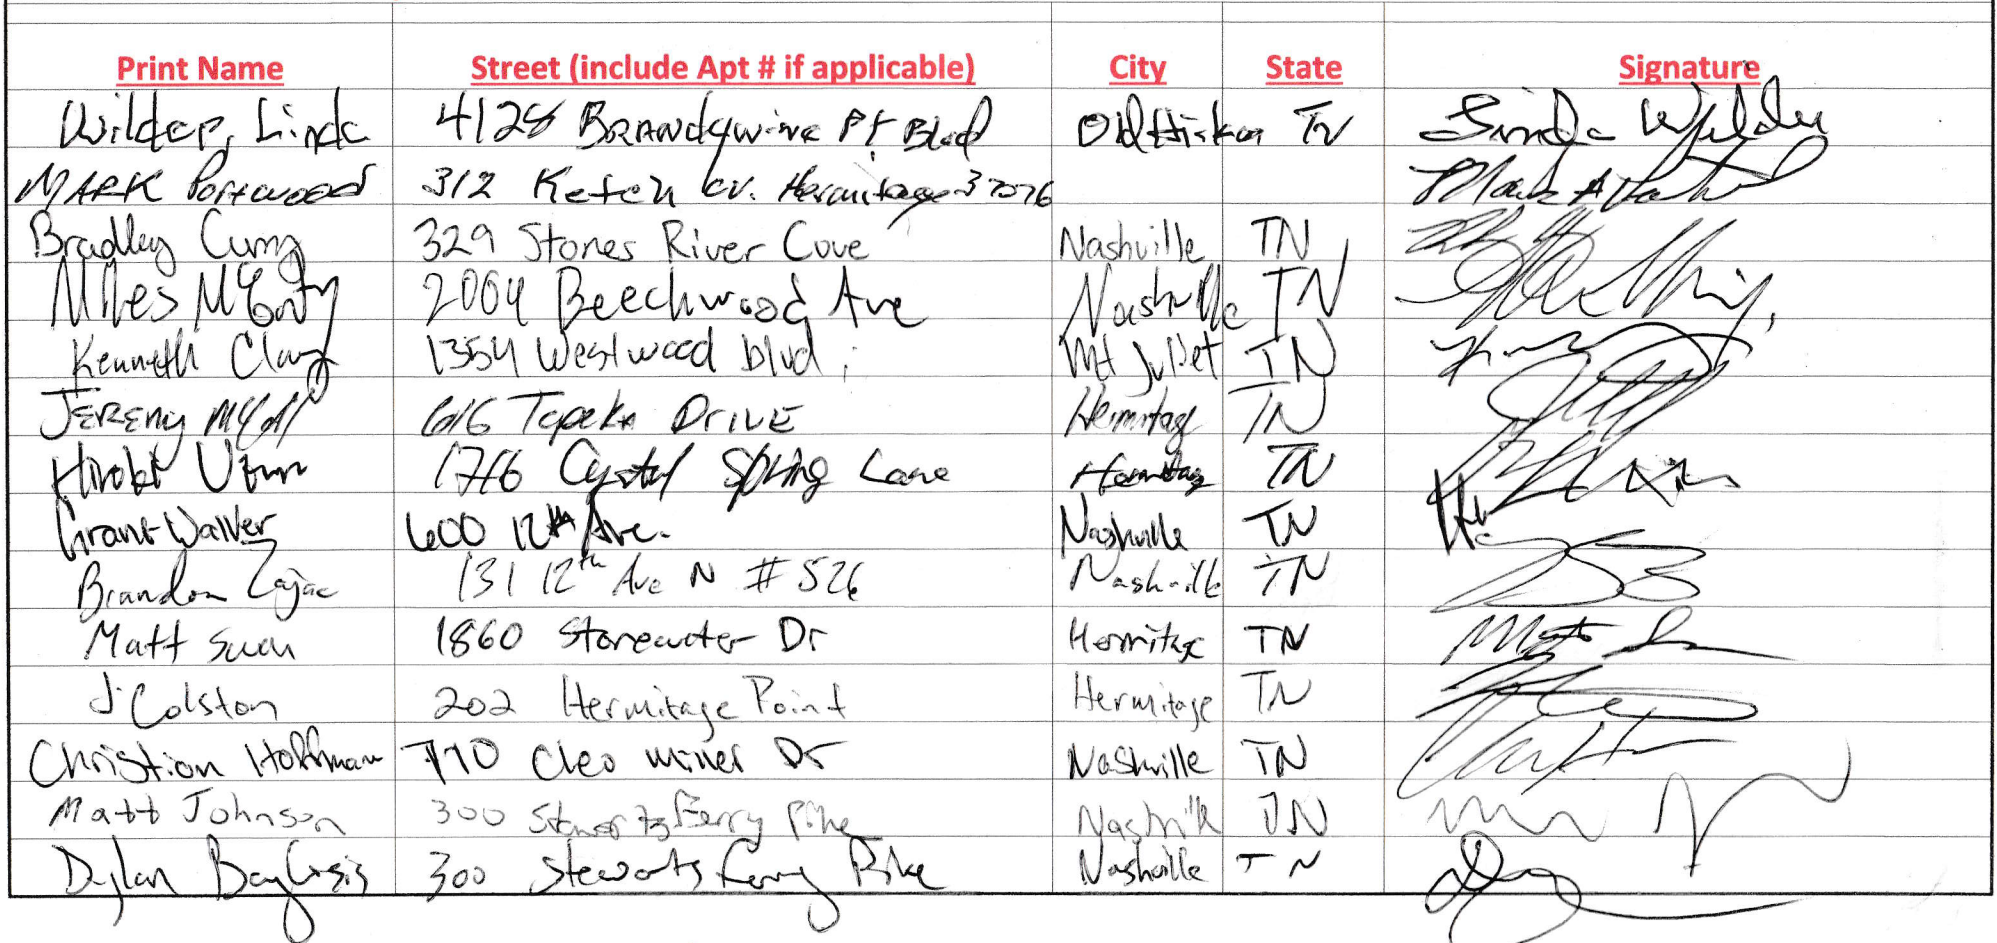 Print Name Street (include Apt # if applicable) City State Signature
Wilder, Linda 4128 Brandywine Pt Blvd Old Hickory TN Linda Wilder
MARK Portwood 312 Ketch cv. Hermitage 37076 Mark A
Bradley 329 Stones River Cove Nashville TN
Miles 2004 Beechwood Ave Nashville TN
Kenneth Clay 1354 Westwood blvd Mt Juliet TN
JEREMY 616 Topeka DRIVE Hermitage TN
Hiroki 1716 Crystal Spring Lane Hermitage TN
Grant Walker 600 12th Ave. Nashville TN
Brandon Zajac 131 12th Ave N # 526 Nashville TN
Matt Swan 1860 Stonewater Dr Hermitage TN
J Colston 202 Hermitage Point Hermitage TN
Christian Hoffman 770 Cleo Miller Dr Nashville TN
Matt Johnson 300 Stewarts Ferry Pike Nashville TN
Dylan 300 Stewarts Ferry Pike Nashville TN